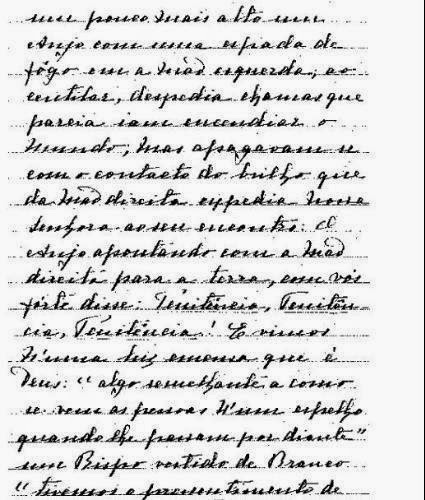 um pouco mais alto um
Anjo com uma espada de
fôgo em a mão esquerda; ao
centilar, despedia chamas que
parecia iam encendiar o
mundo; mas apagavam-se
com o contacto do brilho que
da mão direita expedia Nossa
Senhora ao seu encontro: O
Anjo apontando com a mão
direita para a terra, com vós
forte disse: Penitência, Penitên-
cia, Penitência! E vimos
n'uma luz emensa que é
Deus: "algo semelhante a como
se vem as pessoas n'um espelho
quando lhe passam por diante"
um Bispo vestido de Branco
"tivemos o pressentimento de